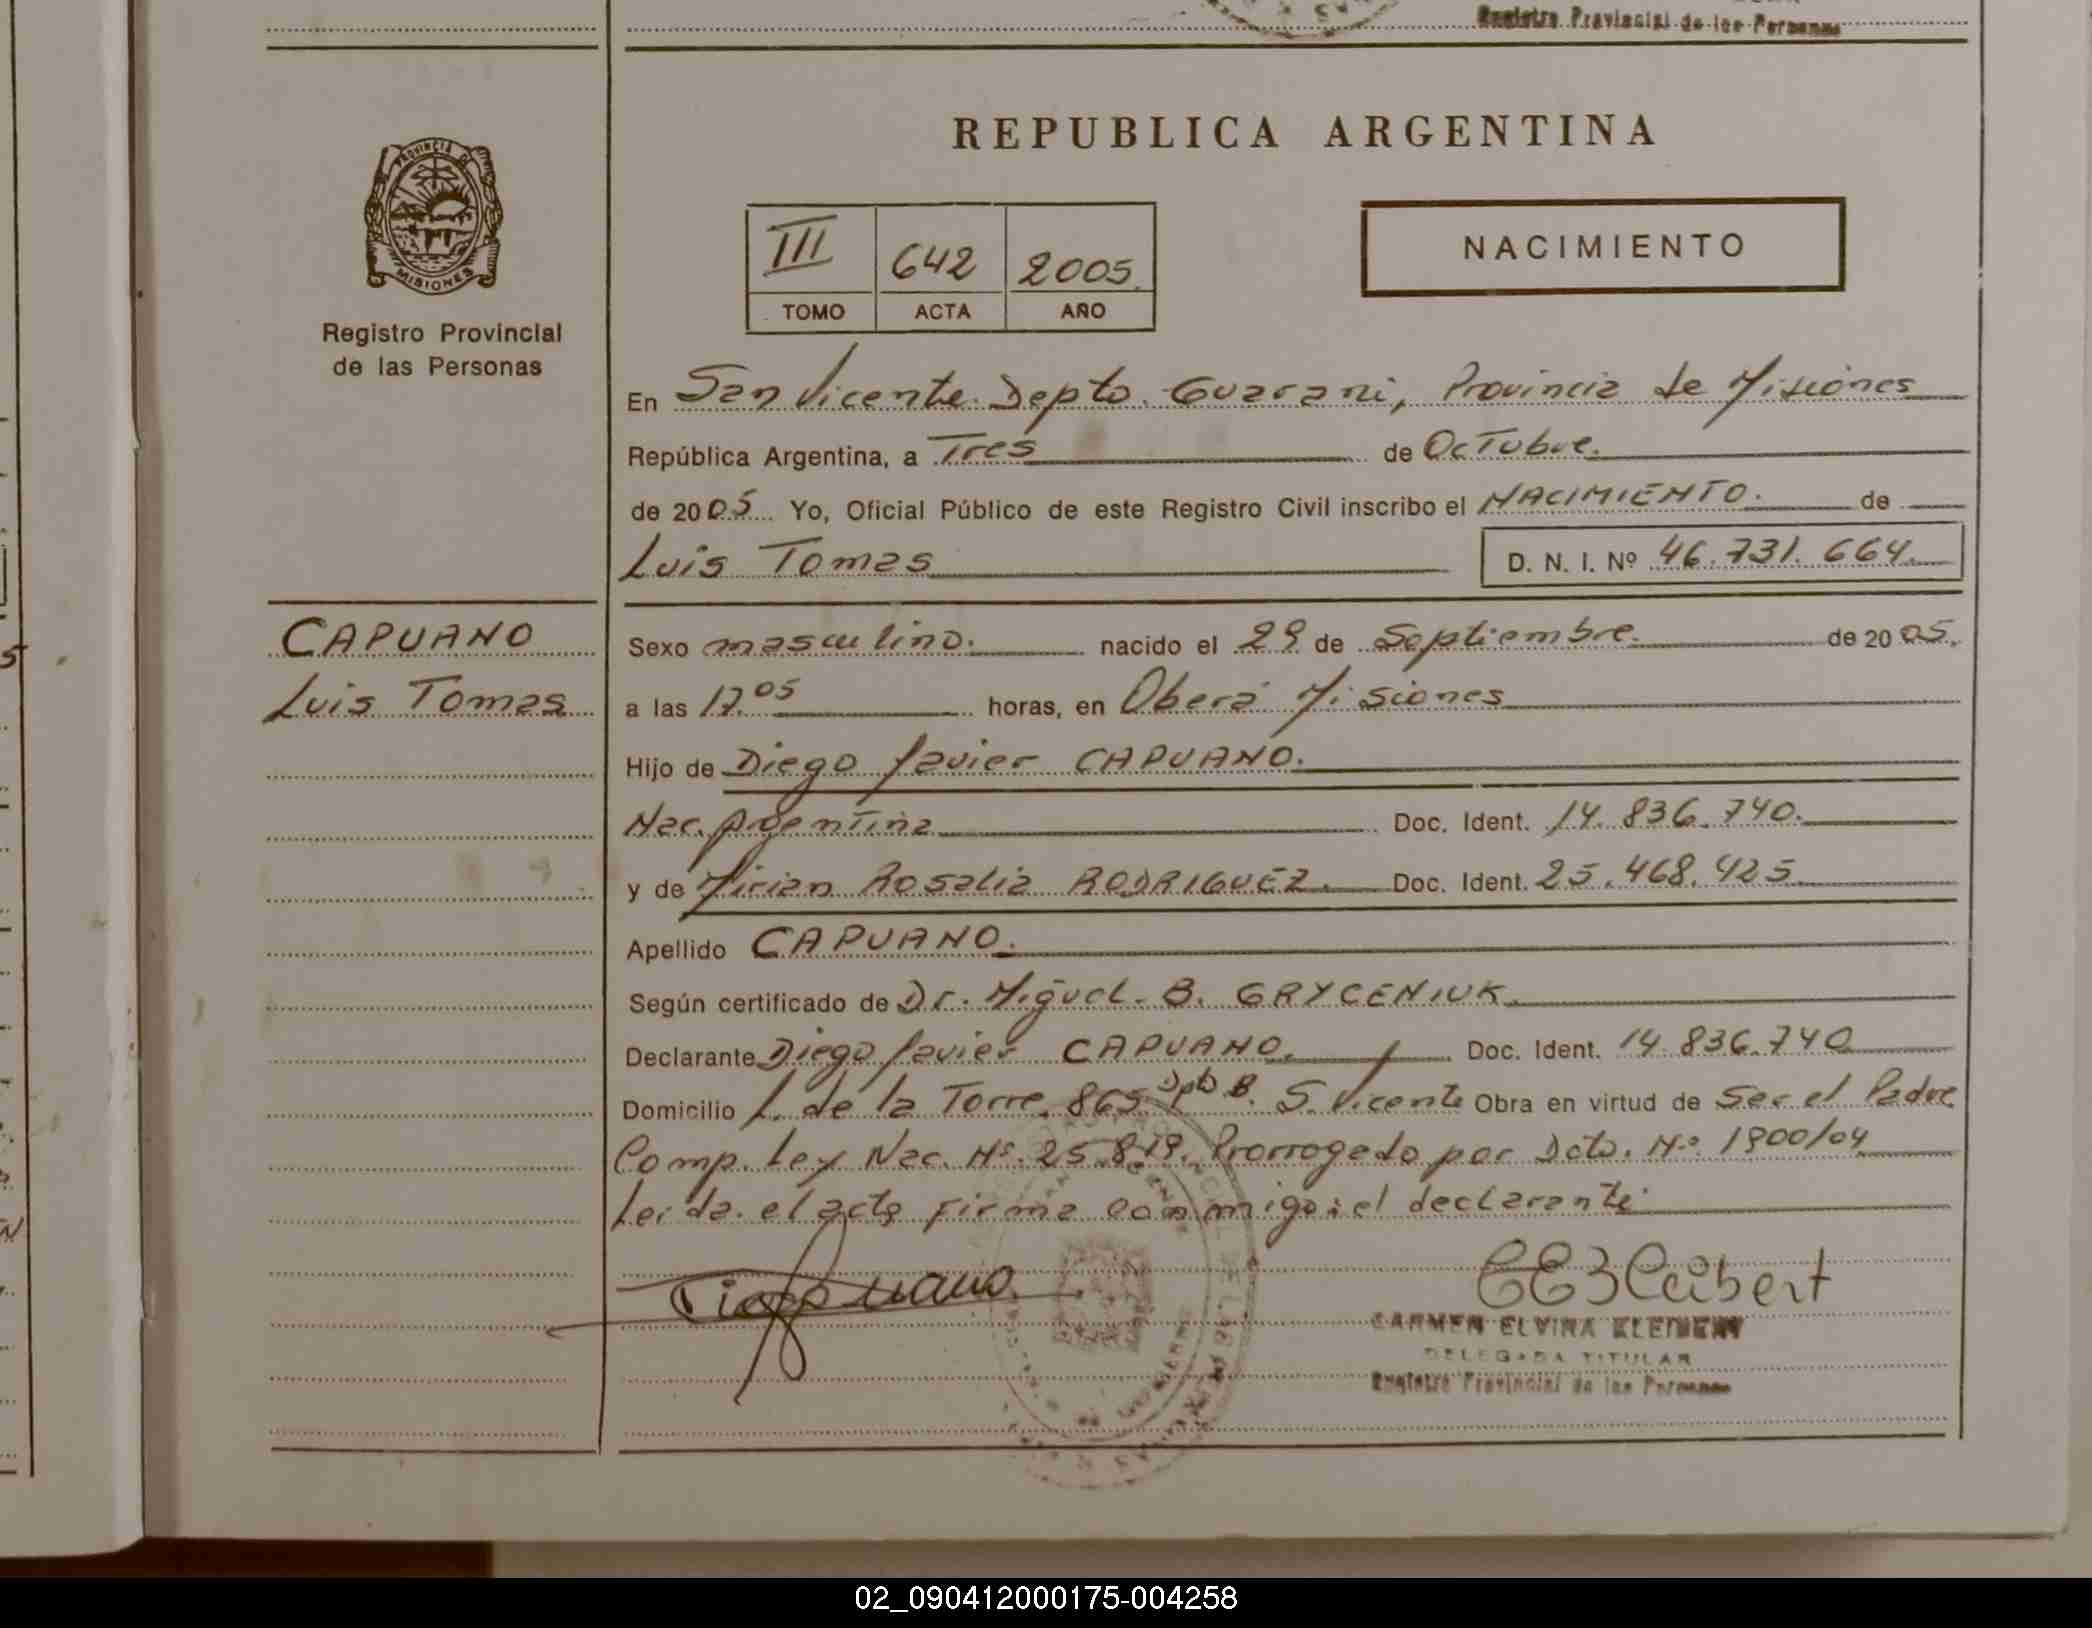 Registro Provincial de las Personas
REPUBLICA ARGENTINA
PROVINCIA DE
MISIONES
Registro Provincial
de las Personas
III 642 2005
TOMO ACTA AÑO
NACIMIENTO
En San Vicente Depto. Guarani, Provincia de Misiones
República Argentina, a Tres de Octubre.
de 2005 Yo, Oficial Público de este Registro Civil inscribo el NACIMIENTO. de
Luis Tomas D. N. I. Nº 46.731.664.
CAPUANO
Luis Tomas
Sexo masculino. nacido el 29 de Septiembre. de 2005.
a las 17.05 horas, en Oberá Misiones
Hijo de Diego Javier CAPUANO.
Nac. Argentina Doc. Ident. 14.836.740.
y de Mirian Rosalia RODRIGUEZ. Doc. Ident. 25.468.425
Apellido CAPUANO.
Según certificado de Dr. Miguel B. GRYCENIUK
Declarante Diego Javier CAPUANO. Doc. Ident. 14.836.740
Domicilio L. de la Torre 865 Dpto B. S. Vicente Obra en virtud de Ser el Padre
Comp. Ley Nac. Nº 25.819. Prorrogado por Dcto. Nº 1900/04
Leida el acta firma conmigo: el declarante
CARMEN ELVIRA
DELEGADA TITULAR
Registro Provincial de las Personas
02_090412000175-004258